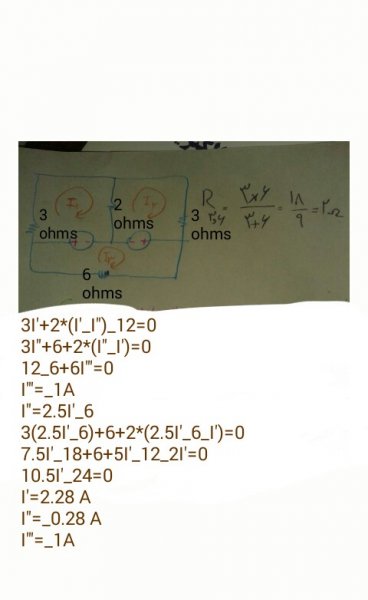 I₁
I₂
I₃
3
ohms
2
ohms
3
ohms
6
ohms
+ -
- +
R۳،۶ = ۳×۶ / ۳+۶ = ۱۸ / ۹ = ۲Ω
3I'+2*(I'_I")_12=0
3I"+6+2*(I"_I')=0
12_6+6I'"=0
I'"=_1A
I"=2.5I'_6
3(2.5I'_6)+6+2*(2.5I'_6_I')=0
7.5I'_18+6+5I'_12_2I'=0
10.5I'_24=0
I'=2.28 A
I"=_0.28 A
I'"=_1A